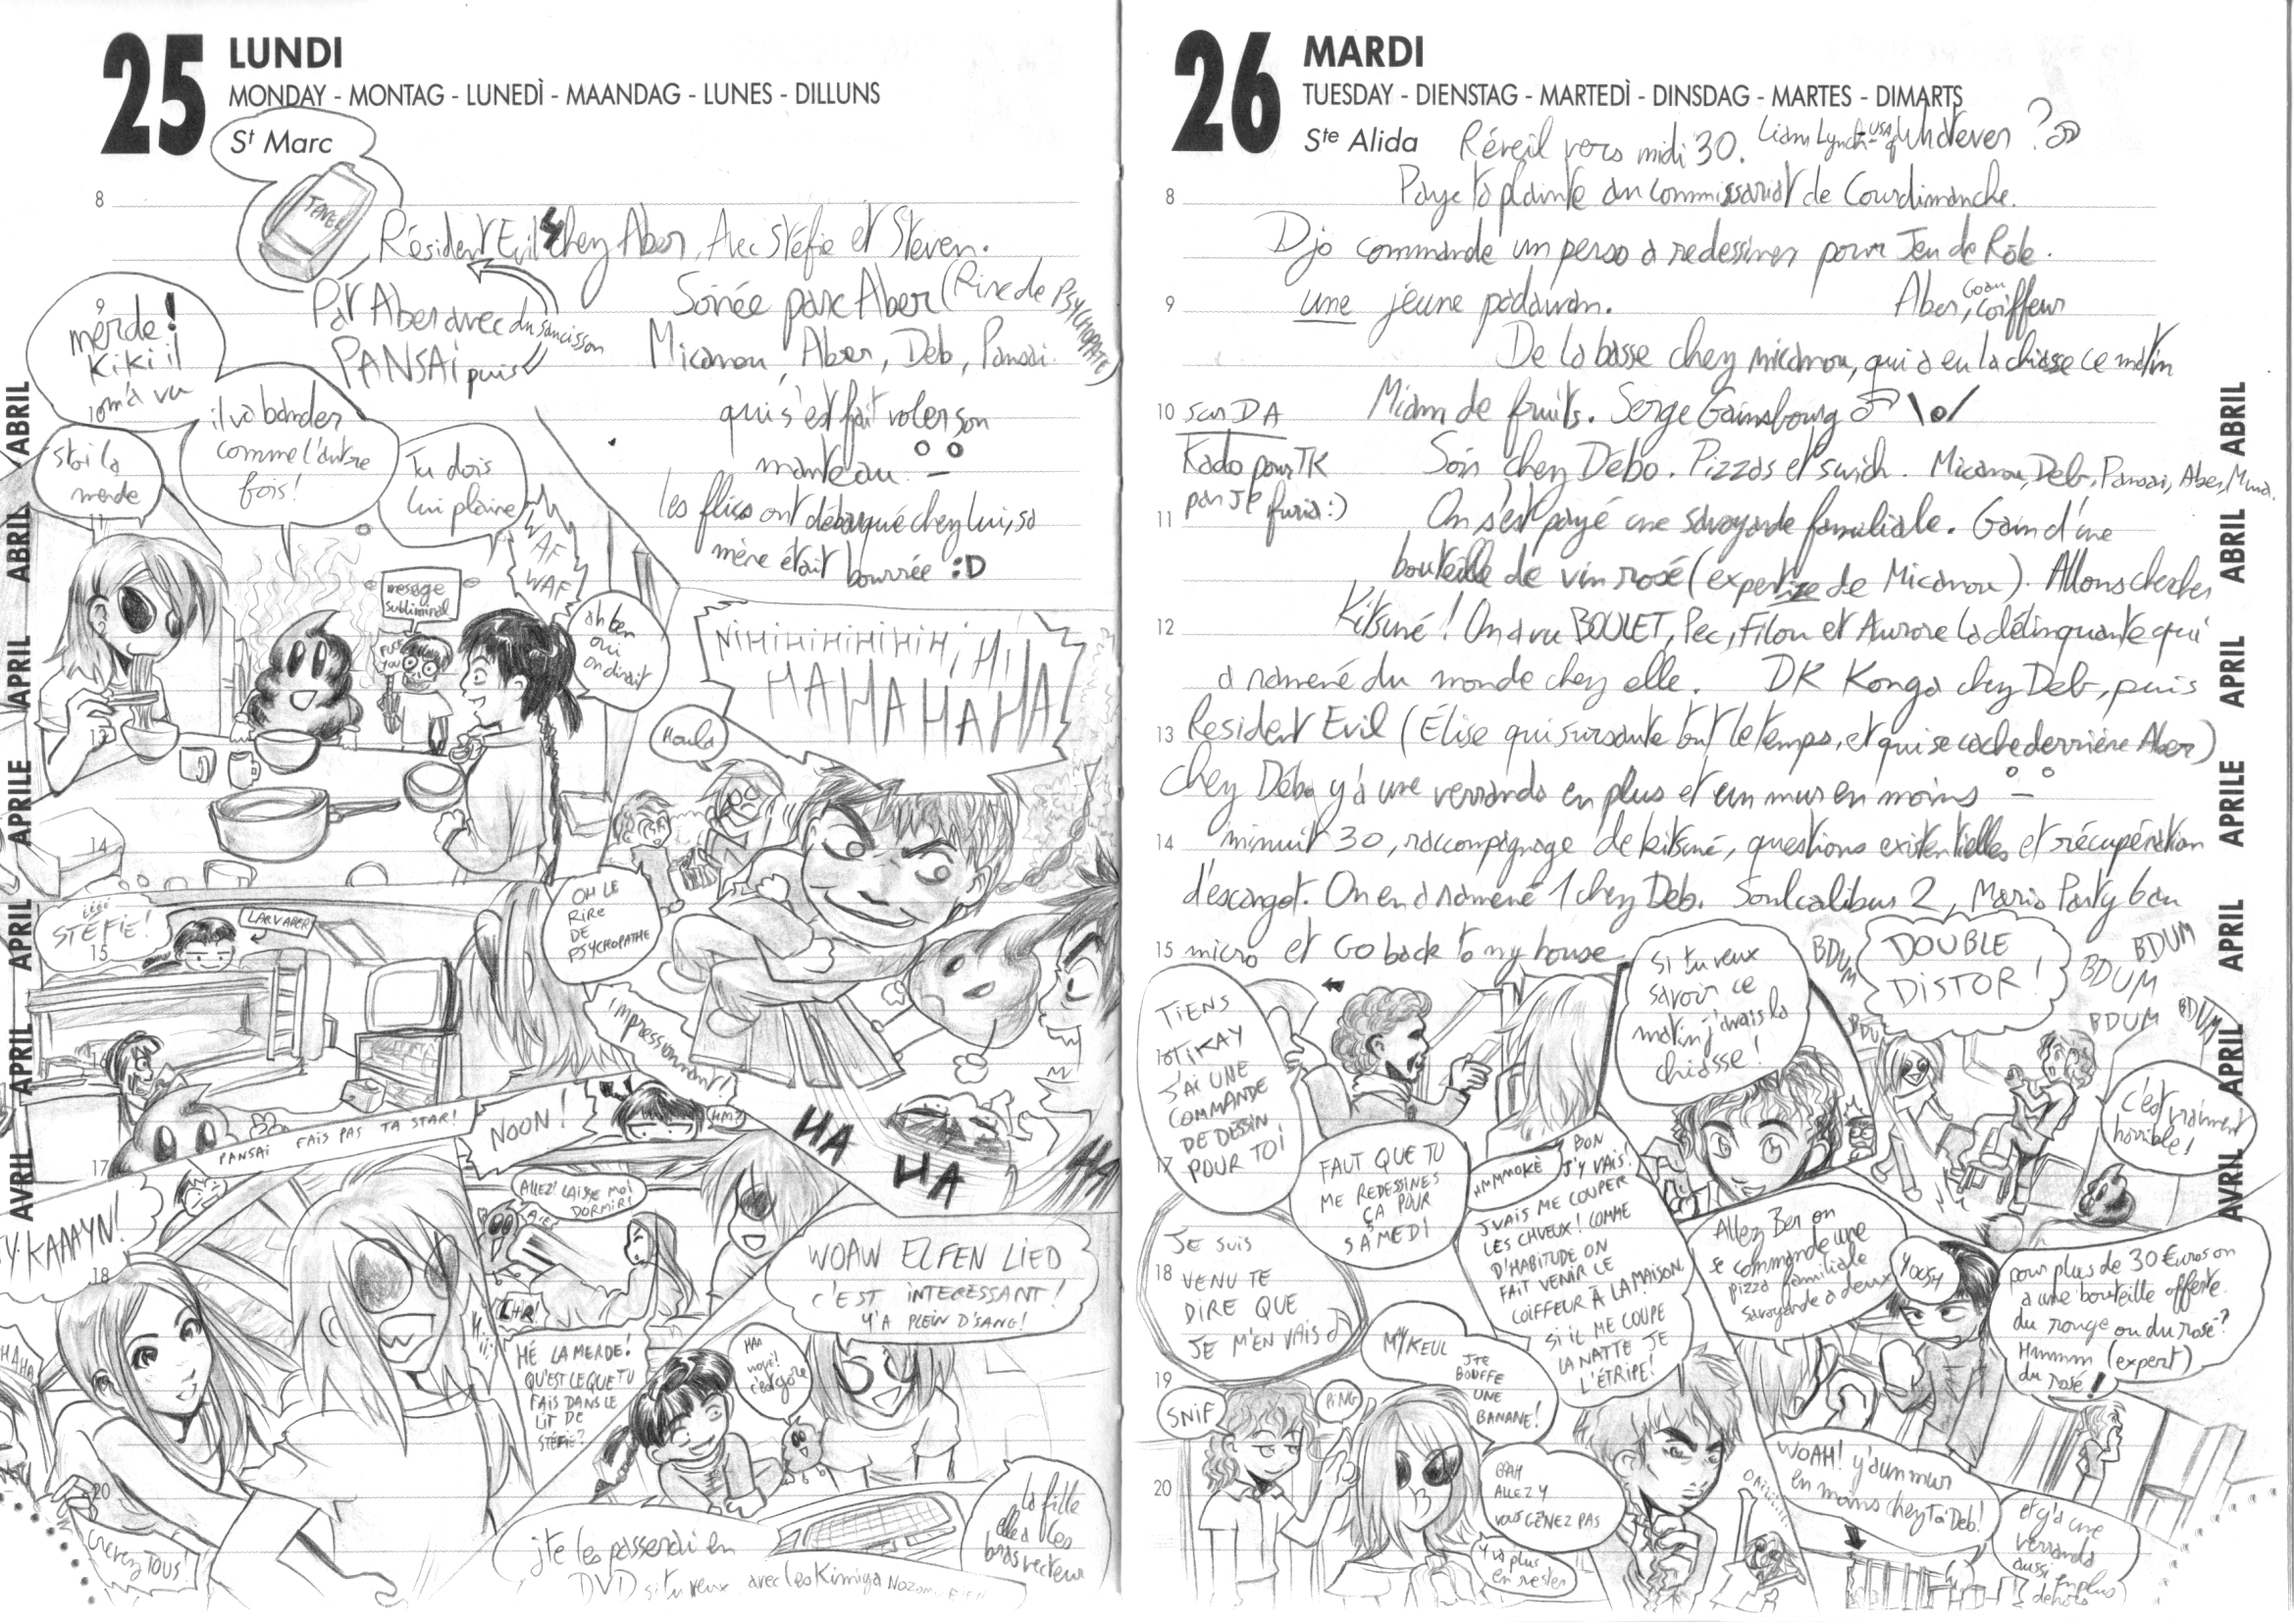 25 LUNDI
MONDAY - MONTAG - LUNEDÌ - MAANDAG - LUNES - DILLUNS
St Marc
8
Résident Evil 4 chez Aber, Avec Stéfie et Steven.
Par Aber avec du saucisson
PANSAI puis
Soirée parc Aber (Rire de PSYCHOPATE)
Micanou, Aber, Deb, Pansai
qui s'est fait voler son
manteau.
les flics ont débarqué chez lui, sa
mère était bourrée :D
9
merde!
Kiki il
m'a vu
il va bander
comme l'autre
fois!
stoi la
merde
Tu dois
lui plaire
WAF
WAF
message
subliminal
FUCK
YOU
ah ben
oui
on dirait
NiHiHiHiHiHiH iHi
HAHAHAHAHA
Houla
14
OH LE
RIRE
DE
PSYCHOPATHE
STÉFIE!
15
LARVABER
impressionnant!
17
PANSAI FAIS PAS TA STAR!
NOON!
HM?
HA
HA
HA
Y-KAAAYN!
18
ALLEZ! LAISSE MOI
DORMIR!
AIE
HÉ LA MERDE!
QU'EST CE QUE TU
FAIS DANS LE
LIT DE
STÉFIE?
WOAW ELFEN LIED
C'EST INTERESSANT!
Y'A PLEIN D'SANG!
HAHA
20
crevez TOUS!
j'te les passerai en
DVD si tu veux avec les Kimiya Nozomi
la fille
elle a les
bras vecteur
AVRIL APRIL APRIL APRILE APRIL ABRIL ABRIL
26 MARDI
TUESDAY - DIENSTAG - MARTEDÌ - DINSDAG - MARTES - DIMARTS
Ste Alida
Réveil vers midi 30. Liam Lynch - USA Whatever ?
8
Paye ta plainte au commissariat de Courdimanche.
Djo commande un perso a redessiner pour Jeu de Rôle.
9
une jeune padawan.
Aber, coiffeur
De la basse chez micanou, qui a eu la chiasse ce matin
10
sur DA
Kado pour TK
par Je furia :)
Miam de fruits. Serge Gainsbourg \o/
Soir chez Débo. Pizzas et swich. Micanou, Deb, Pansai, Aber, Muna.
11
On s'est payé une savoyarde familiale. Gain d'une
bouteille de vin rosé (expertize de Micanou). Allons chercher
12
Kitsuné! On a vu BOULET, Pec, Filou et Aurore la délinquante qui
a ramené du monde chez elle. DK Konga chez Deb, puis
13
Resident Evil (Élise qui sursaute tout le temps, et qui se cache derrière Aber)
Chez Débo y'a une verranda en plus et un mur en moins
14
minuit 30, raccompagnage de kitsuné, questions existentielles et récupération
d'escargot. On en a ramené 1 chez Deb. Soulcalibur 2, Mario Party 6 au
15
micro et Go back to my house
TIENS
TIKAY
J'AI UNE
COMMANDE
DE DESSIN
POUR TOI
FAUT QUE TU
ME REDESSINES
ÇA POUR
SAMEDI
HMMMOKÈ
Si tu veux
savoir ce
matin j'avais la
chiasse!
BDUM
DOUBLE
DISTOR!
BDUM
BDUM
BDUM
BDUM
BDU
c'est vraiment
horrible!
17
BON
J'Y VAIS!
J'VAIS ME COUPER
LES CHVEUX! COMME
D'HABITUDE ON
FAIT VENIR LE
COIFFEUR À LA MAISON
SI IL ME COUPE
LA NATTE JE
L'ÉTRIPE!
JE SUIS
18
VENU TE
DIRE QUE
JE M'EN VAIS
Allez Ber on
se commande une
pizza familiale
savoyarde a deux
YOOSH
pour plus de 30 Euros on
a une bouteille offerte.
du rouge ou du rosé?
Hmmm (expert)
du rosé!
19
SNIF
PING
MYKEUL
JTE
BOUFFE
UNE
BANANE!
20
BAH
ALLEZ Y
VOUS GÊNEZ PAS
Y va plus
en rester
WOAH! y'a un mur
en moins chez Ta Deb!
et y'a une
verranda
aussi en plus
dehors
AVRIL APRIL APRIL APRILE APRIL ABRIL ABRIL